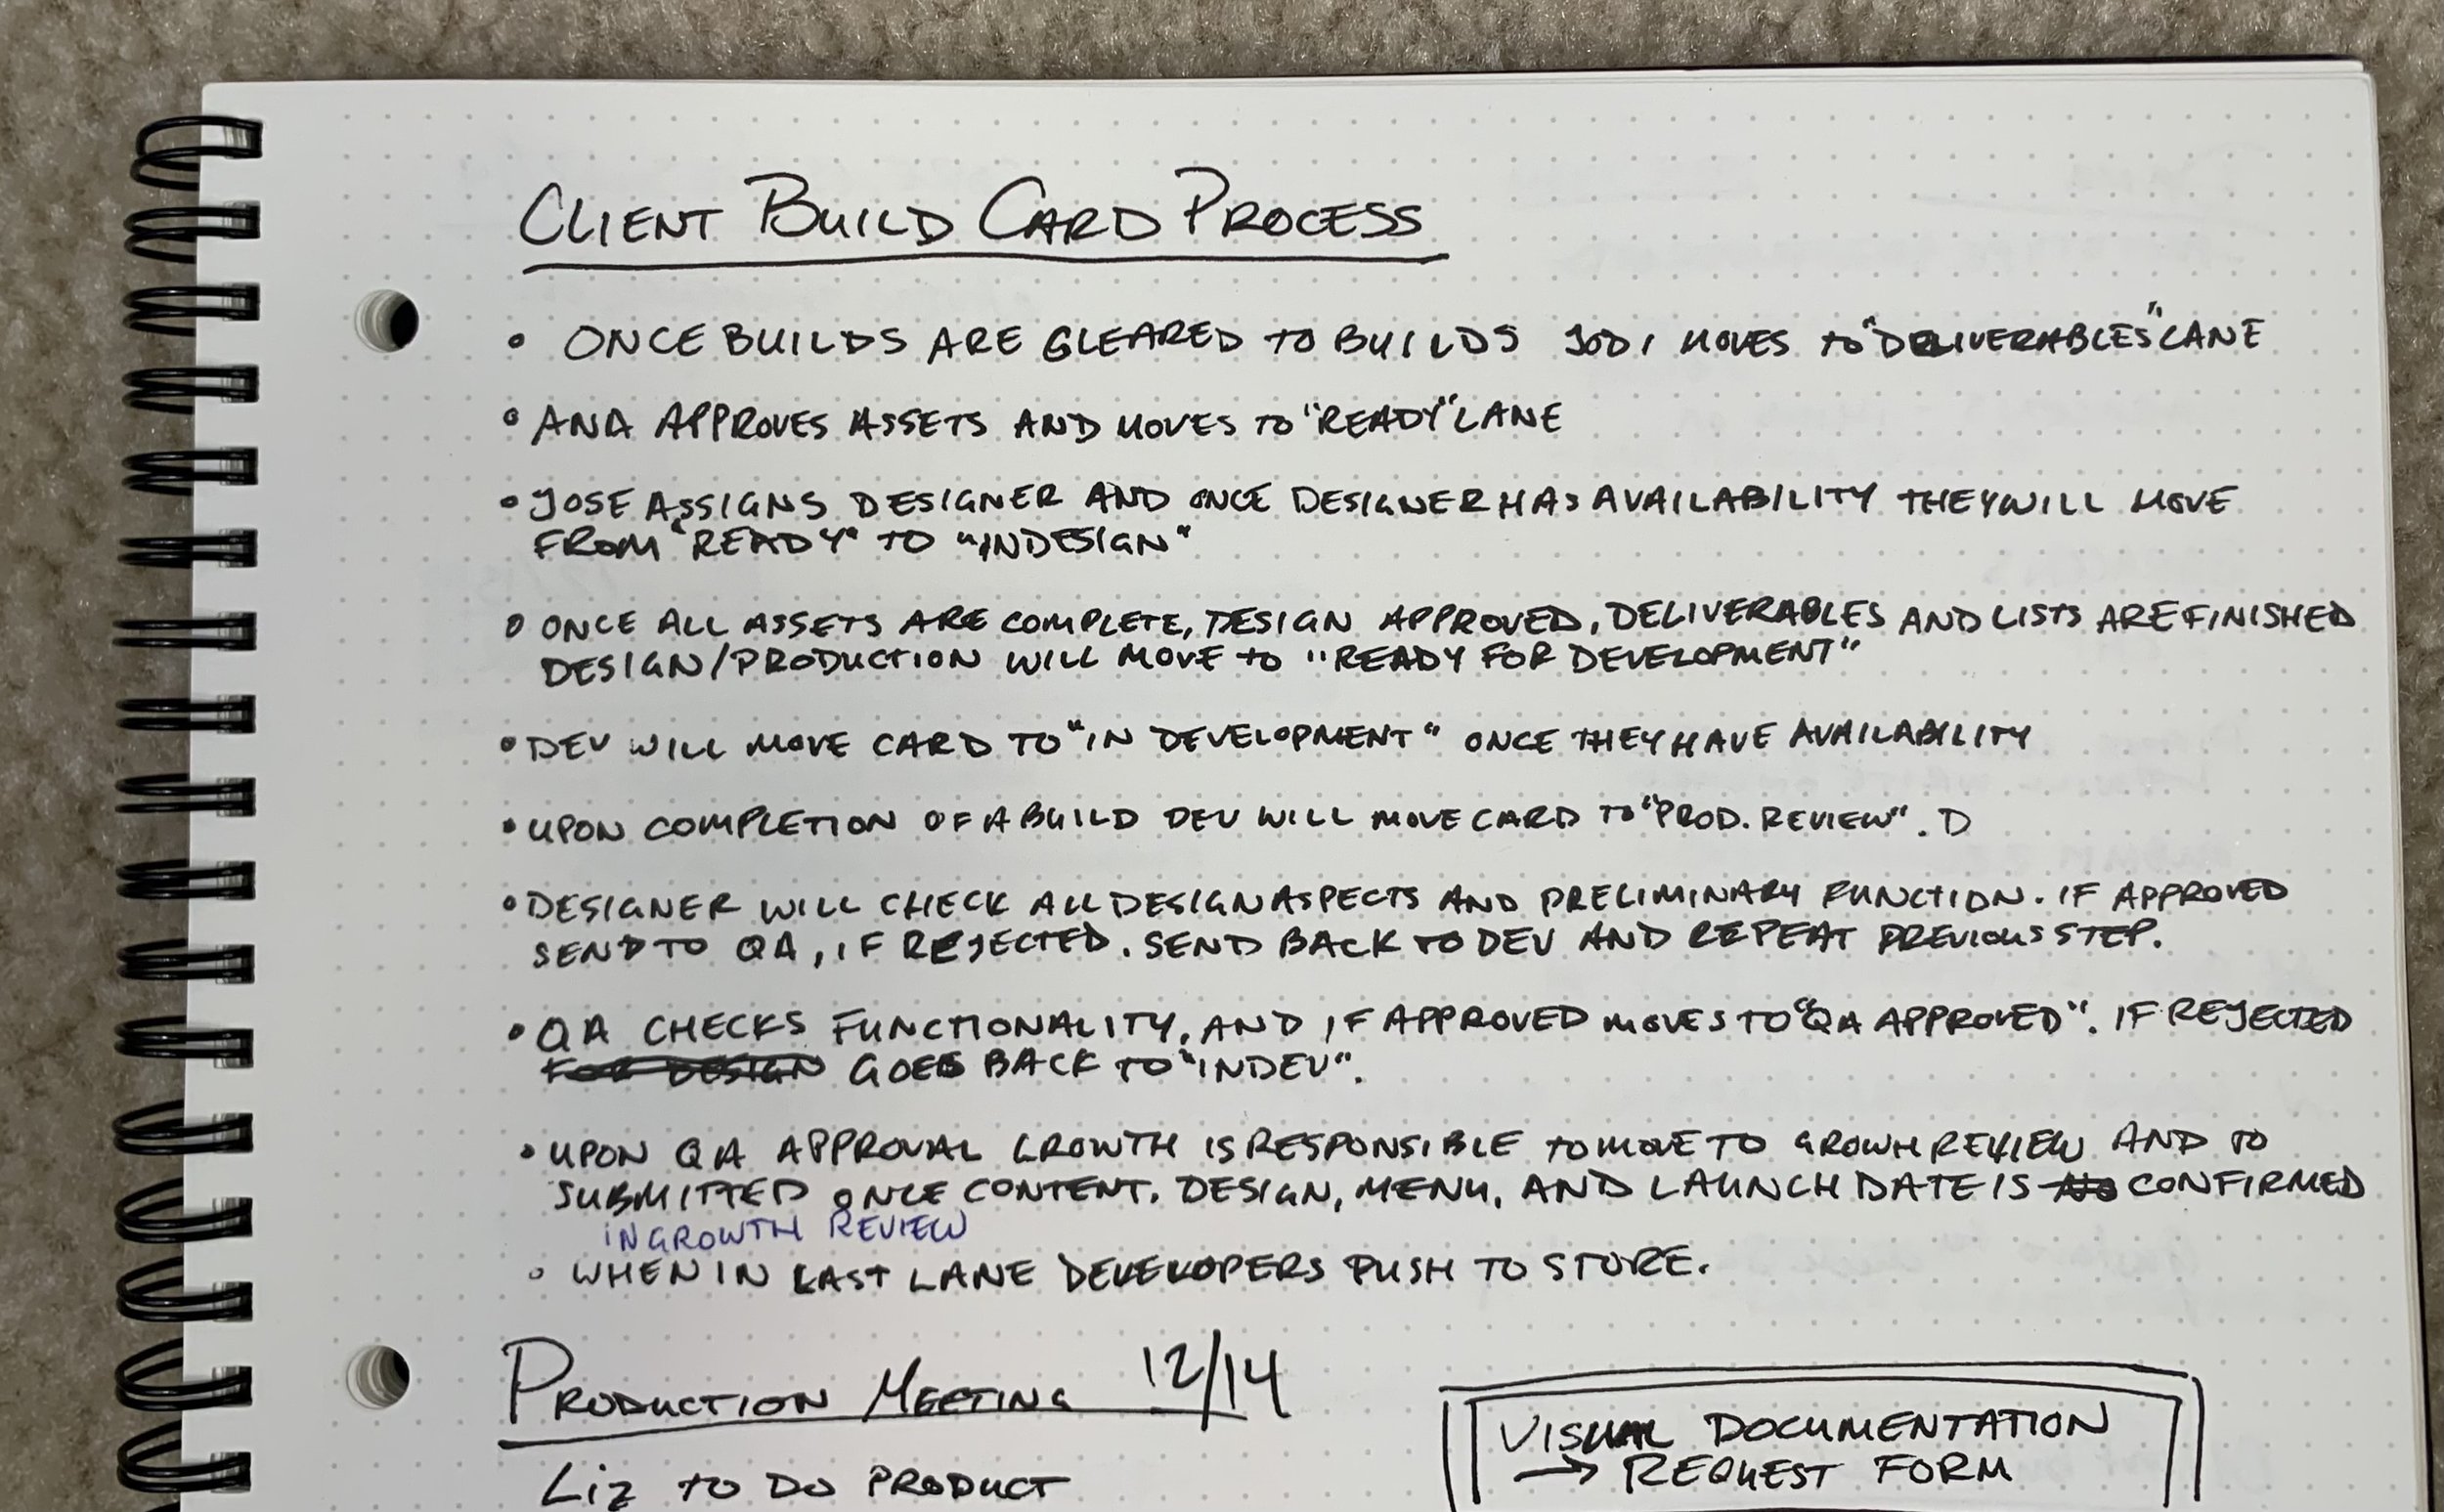 CLIENT BUILD CARD PROCESS
• ONCE BUILDS ARE CLEARED TO BUILDS JODI MOVES TO "DELIVERABLES" LANE
• ANA APPROVES ASSETS AND MOVES TO "READY" LANE
• JOSE ASSIGNS DESIGNER AND ONCE DESIGNER HAS AVAILABILITY THEY WILL MOVE
FROM "READY" TO "INDESIGN"
• ONCE ALL ASSETS ARE COMPLETE, DESIGN APPROVED, DELIVERABLES AND LISTS ARE FINISHED
DESIGN/PRODUCTION WILL MOVE TO "READY FOR DEVELOPMENT"
• DEV WILL MOVE CARD TO "IN DEVELOPMENT" ONCE THEY HAVE AVAILABILITY
• UPON COMPLETION OF A BUILD DEV WILL MOVE CARD TO "PROD. REVIEW". D
• DESIGNER WILL CHECK ALL DESIGN ASPECTS AND PRELIMINARY FUNCTION. IF APPROVED
SEND TO QA, IF REJECTED. SEND BACK TO DEV AND REPEAT PREVIOUS STEP.
• QA CHECKS FUNCTIONALITY, AND IF APPROVED MOVES TO "QA APPROVED". IF REJECTED
FOR DESIGN GOES BACK TO "INDEV".
• UPON QA APPROVAL GROWTH IS RESPONSIBLE TO MOVE TO GROWH REVIEW AND TO
SUBMITTED ONCE CONTENT. DESIGN, MENU, AND LAUNCH DATE IS CONFIRMED
IN GROWTH REVIEW
• WHEN IN LAST LANE DEVELOPERS PUSH TO STORE.
PRODUCTION MEETING 12/14
LIZ TO DO PRODUCT
VISUAL DOCUMENTATION
→ REQUEST FORM